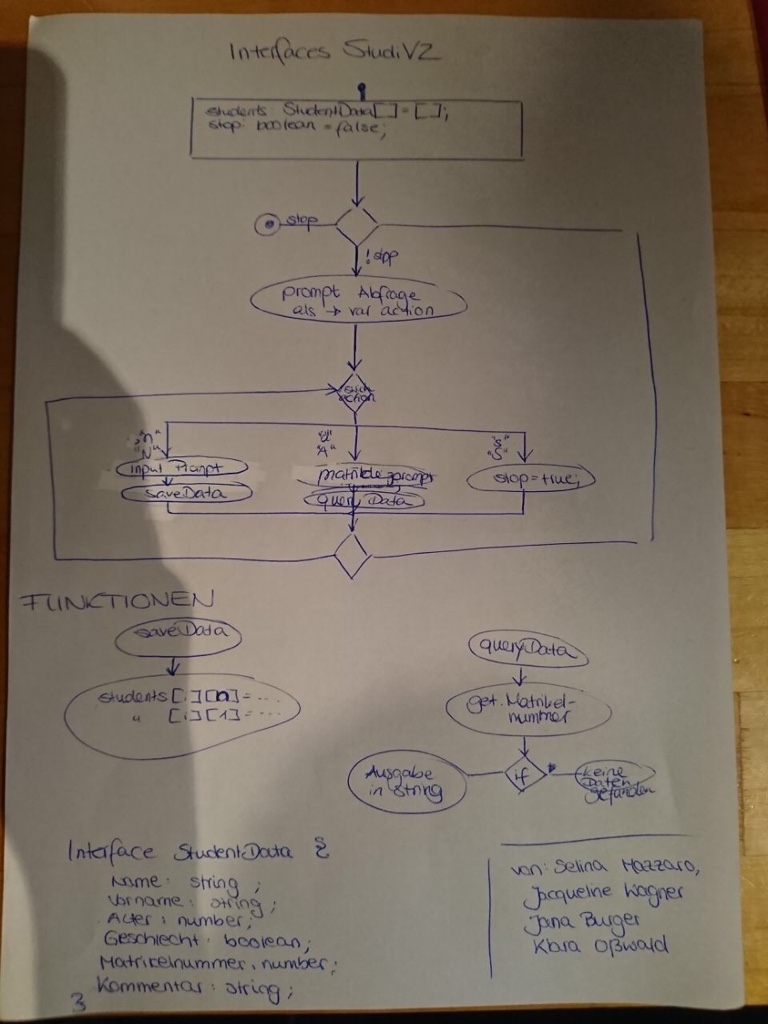 Interfaces StudiVZ
students: StudentData[] = [];
stop: boolean = false;
stop
!stop
prompt Abfrage
als → var action
switch
action
"n"
"N"
"a"
"A"
"s"
"S"
input Prompt
saveData
prompt
queryData
stop = true;
FUNKTIONEN
saveData
students [i][0] = ...
" [i][1] = ...
queryData
get Matrikel-
nummer
if
Ausgabe
in string
keine
Daten
gefunden
Interface StudentData {
Name: string ;
Vorname: string;
Alter: number;
Geschlecht: boolean;
Matrikelnummer: number;
Kommentar: string;
}
von: Selina Mazzaro,
Jacqueline Wagner
Jana Burger
Klara Oßwald